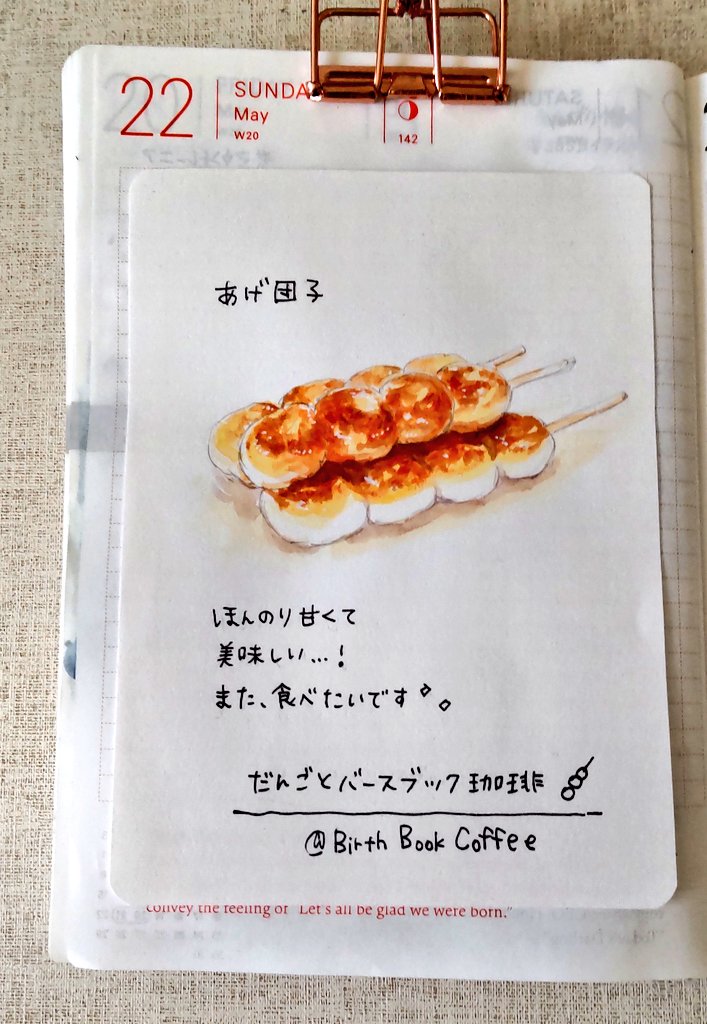 22
SUNDA
May
W20
142
あげ団子
ほんのり甘くて
美味しい…!
また、食べたいです
だんごとバースブック珈琲
@Birth Book Coffee
convey the feeling of "Let's all be glad we were born."